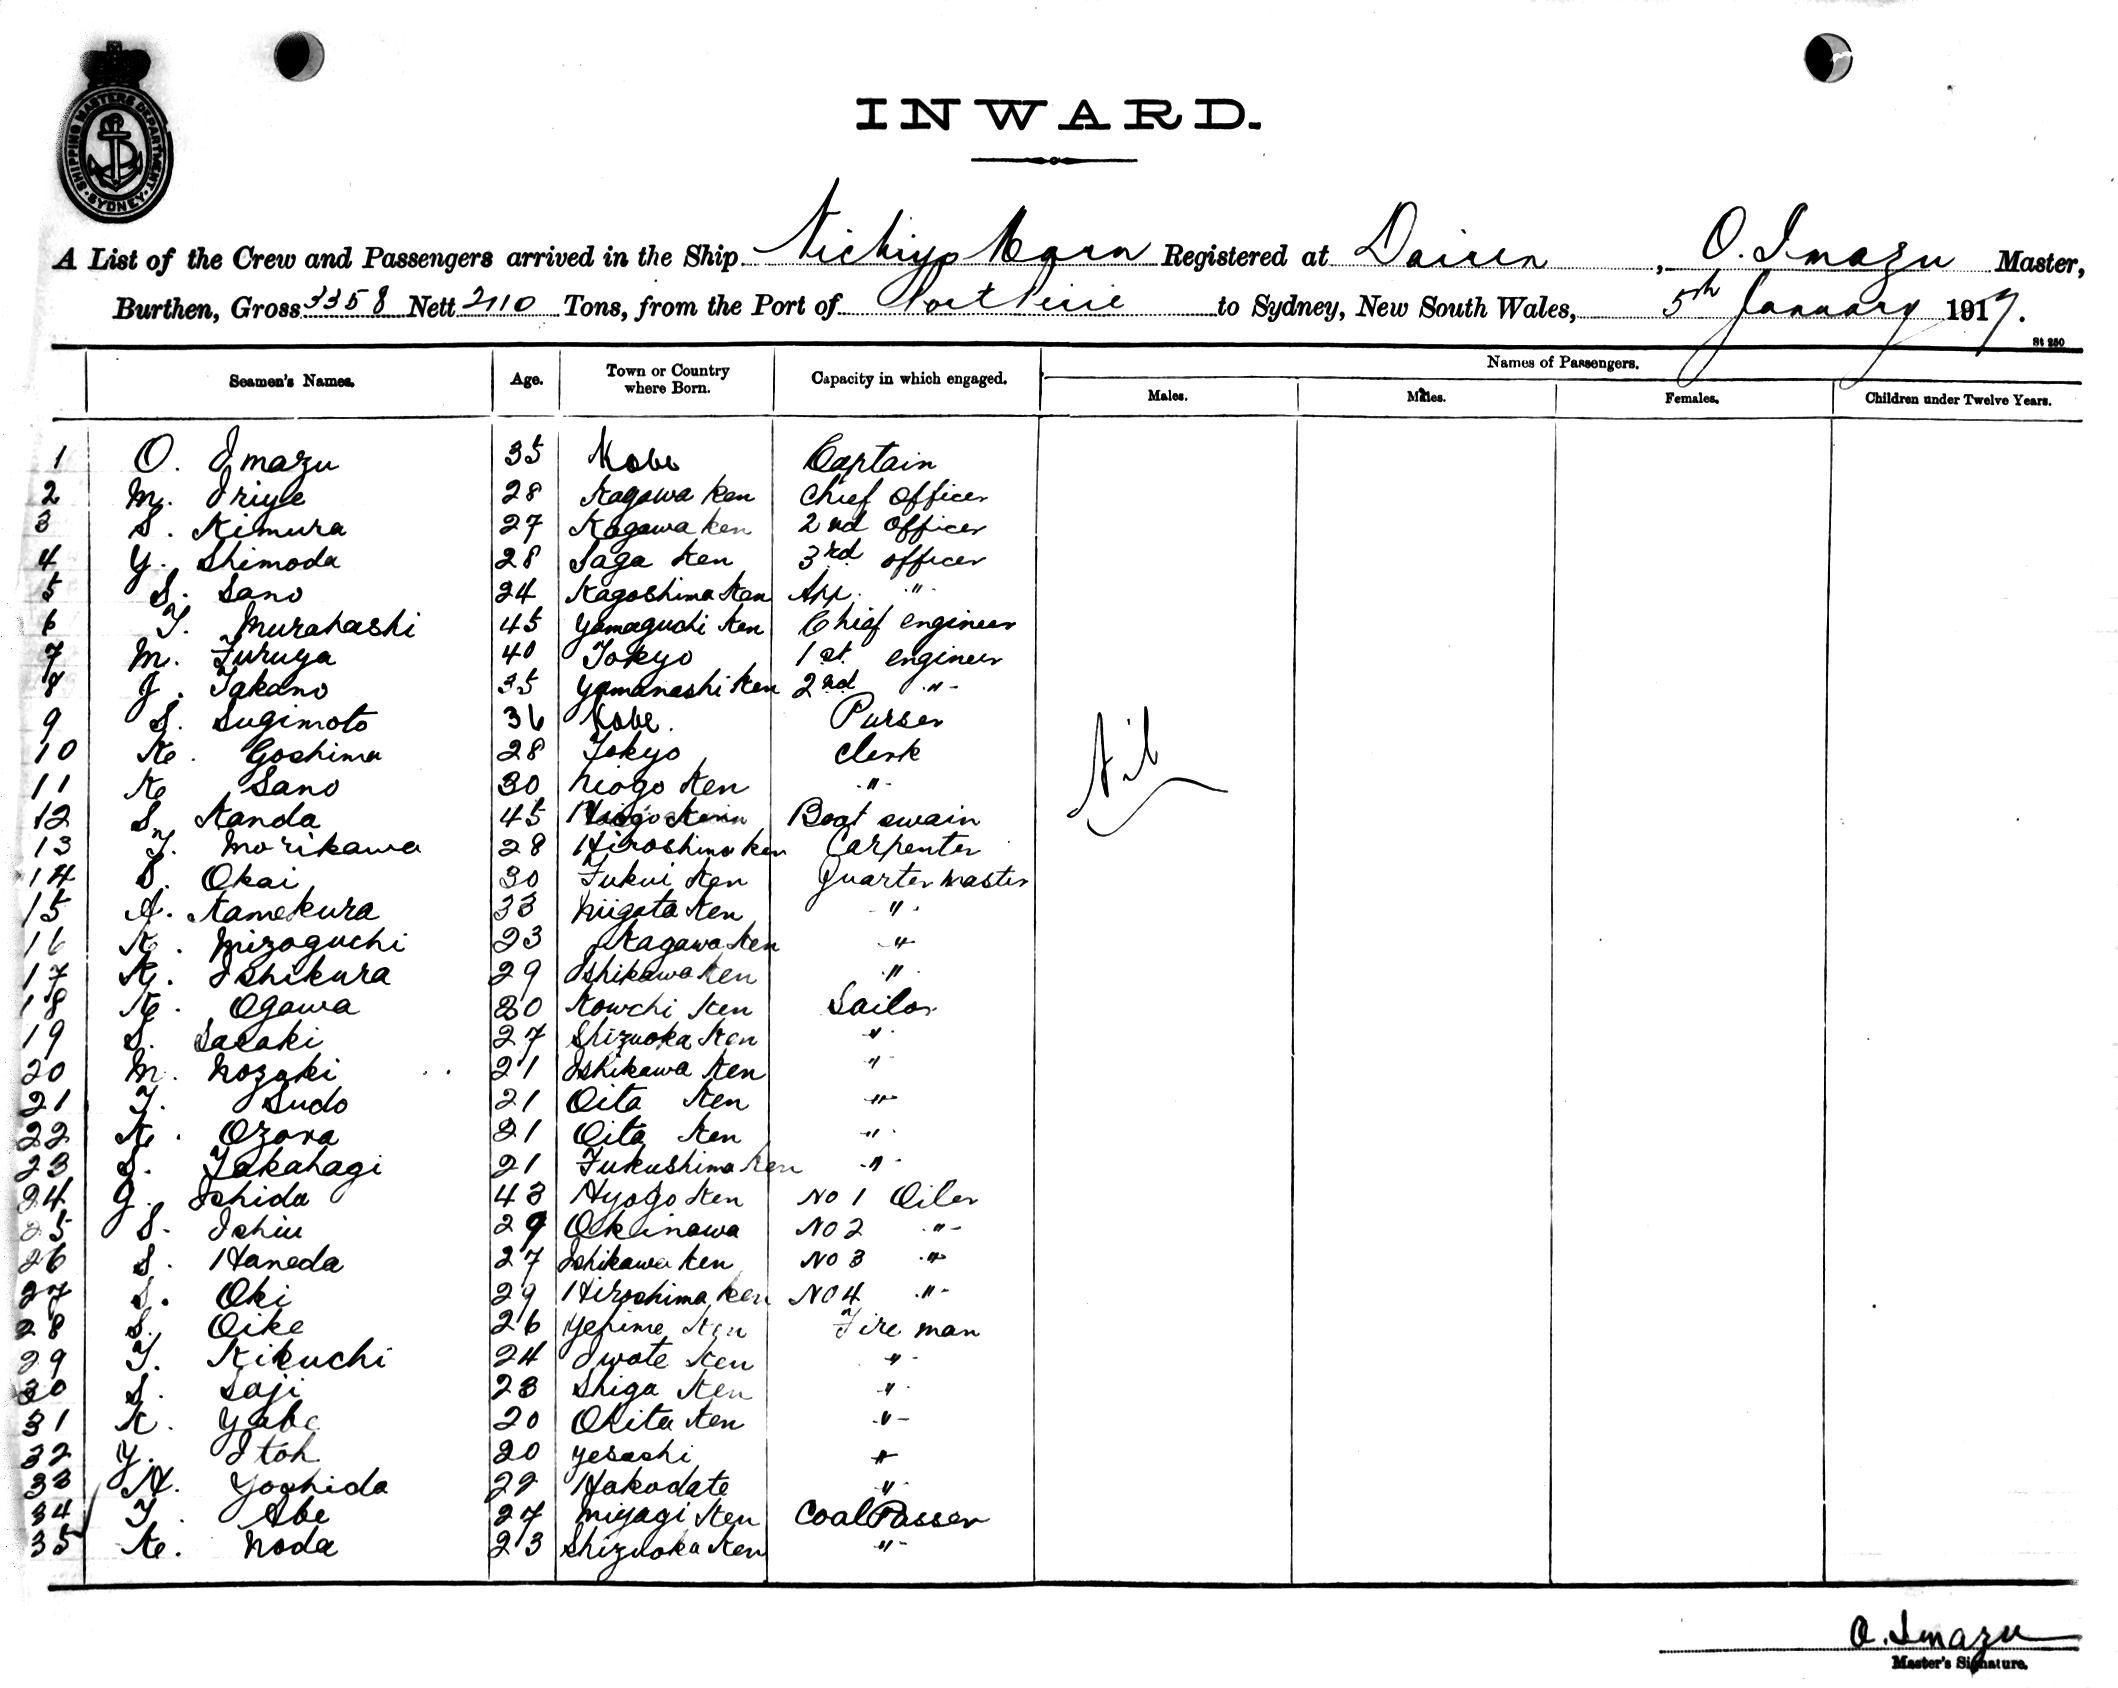 SHIPPING MASTERS DEPARTMENT
SYDNEY
INWARD.
A List of the Crew and Passengers arrived in the Ship Nichiyo Maru Registered at Dairen, O. Imazu Master,
Burthen, Gross 3358 Nett 2110 Tons, from the Port of Port Pirie to Sydney, New South Wales, 5th January 1917.
St 250
Seamen's Names. Age. Town or Country where Born. Capacity in which engaged. Names of Passengers.
Males. Males. Females. Children under Twelve Years.
1 O. Imazu 35 Kobe Captain
2 M. Iriye 28 Kagawa Ken Chief officer
3 S. Kimura 27 Kagawa Ken 2nd officer
4 Y. Shimoda 28 Saga Ken 3rd officer
5 S. Sano 24 Kagoshima Ken App. "
6 T. Murahashi 45 Yamaguchi Ken Chief engineer
7 M. Furuya 40 Tokyo 1st engineer
8 J. Takano 35 Yamanashi Ken 2nd "
9 S. Sugimoto 36 Kobe. Purser
10 K. Goshima 28 Tokyo Clerk
11 K Sano 30 Hiogo Ken "
12 S. Kanda 45 Boat swain
13 T. Morikawa 28 Hiroshima Ken Carpenter
14 S. Okai 30 Fukui Ken Quarter master
15 A. Kamekura 33 Niigata Ken "
16 K. Mizoguchi 23 Kagawa Ken "
17 K. Ishikura 29 Ishikawa Ken "
18 K. Ogawa 30 Kowchi Ken Sailor
19 S. Sasaki 27 Shizuoka Ken "
20 M. Nozaki 21 Ishikawa Ken "
21 T. Sudo 21 Oita Ken "
22 K. Ozora 21 Oita Ken "
23 S. Takahagi 21 Fukushima Ken "
24 G. Ishida 43 Hyogo Ken No 1 Oiler
25 S. Ishiu 29 Okinawa No 2 "
26 S. Haneda 27 Ishikawa Ken No 3 "
27 S. Oki 29 Hiroshima Ken No 4 "
28 S. Oike 26 Yehime Ken Fire man
29 T. Kikuchi 24 Iwate Ken "
30 S. Saji 23 Shiga Ken "
31 K. Yabe 20 Okita Ken "
32 Y. Itoh 20 Yesashi "
33 H. Yoshida 22 Hakodate "
34 T. Abe 27 Miyagi Ken Coal Passer
35 K. Noda 23 Shizuoka Ken "
Nil
O. Imazu
Master's Signature.